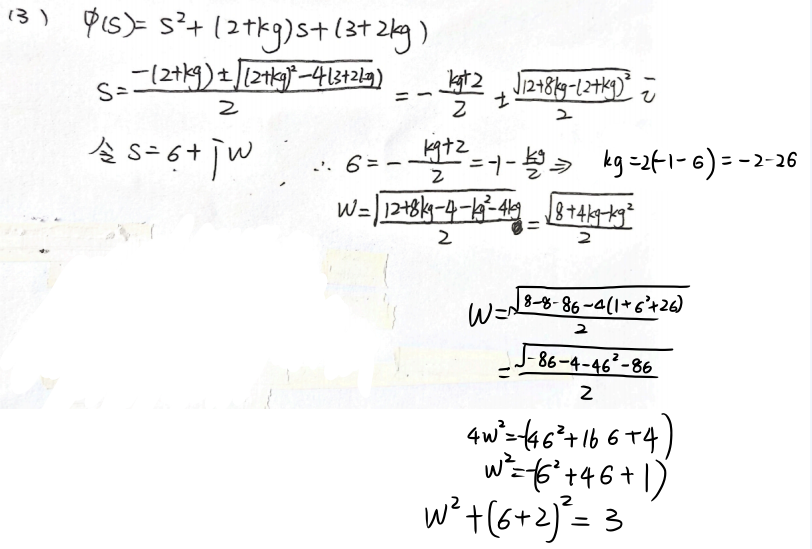 (3) φ(s)= s²+(2+kg)s+(3+2kg)
s= (-(2+kg)±√((2+kg)²-4(3+2kg)))/2 = - (kg+2)/2 ± √(12+8kg-(2+kg)²)/2 i
令 s=6+jw ∴ 6=-(kg+2)/2=-1-kg/2 ⇒ kg=2(-1-6)=-2-26
w=√(12+8kg-4-kg²-4kg)/2=√(8+4kg-kg²)/2
w=√(8-8-86-4(1+6²+26))/2
=√(-86-4-46²-86)/2
4w²=-(46²+16 6+4)
w²=-(6²+46+1)
w²+(6+2)²=3